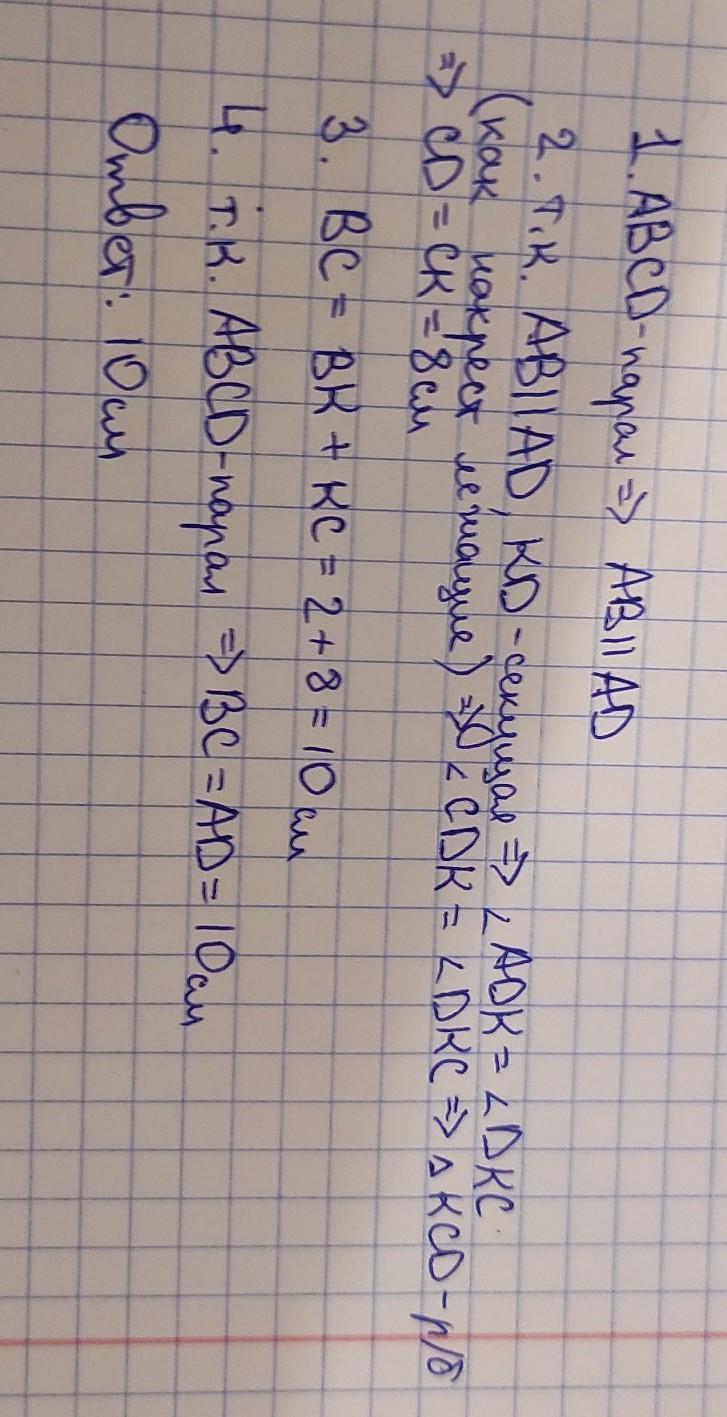 1. ABCD-парал => AB || AD
2. т.к. AB || AD, KD-секущая => ∠ADK = ∠DKC
(как накрест лежащие) => ∠CDK = ∠DKC => △KCD-р/б
=> CD = CK = 8см
3. BC = BK + KC = 2 + 8 = 10см
4. т.к. ABCD-парал => BC = AD = 10см
Ответ: 10см